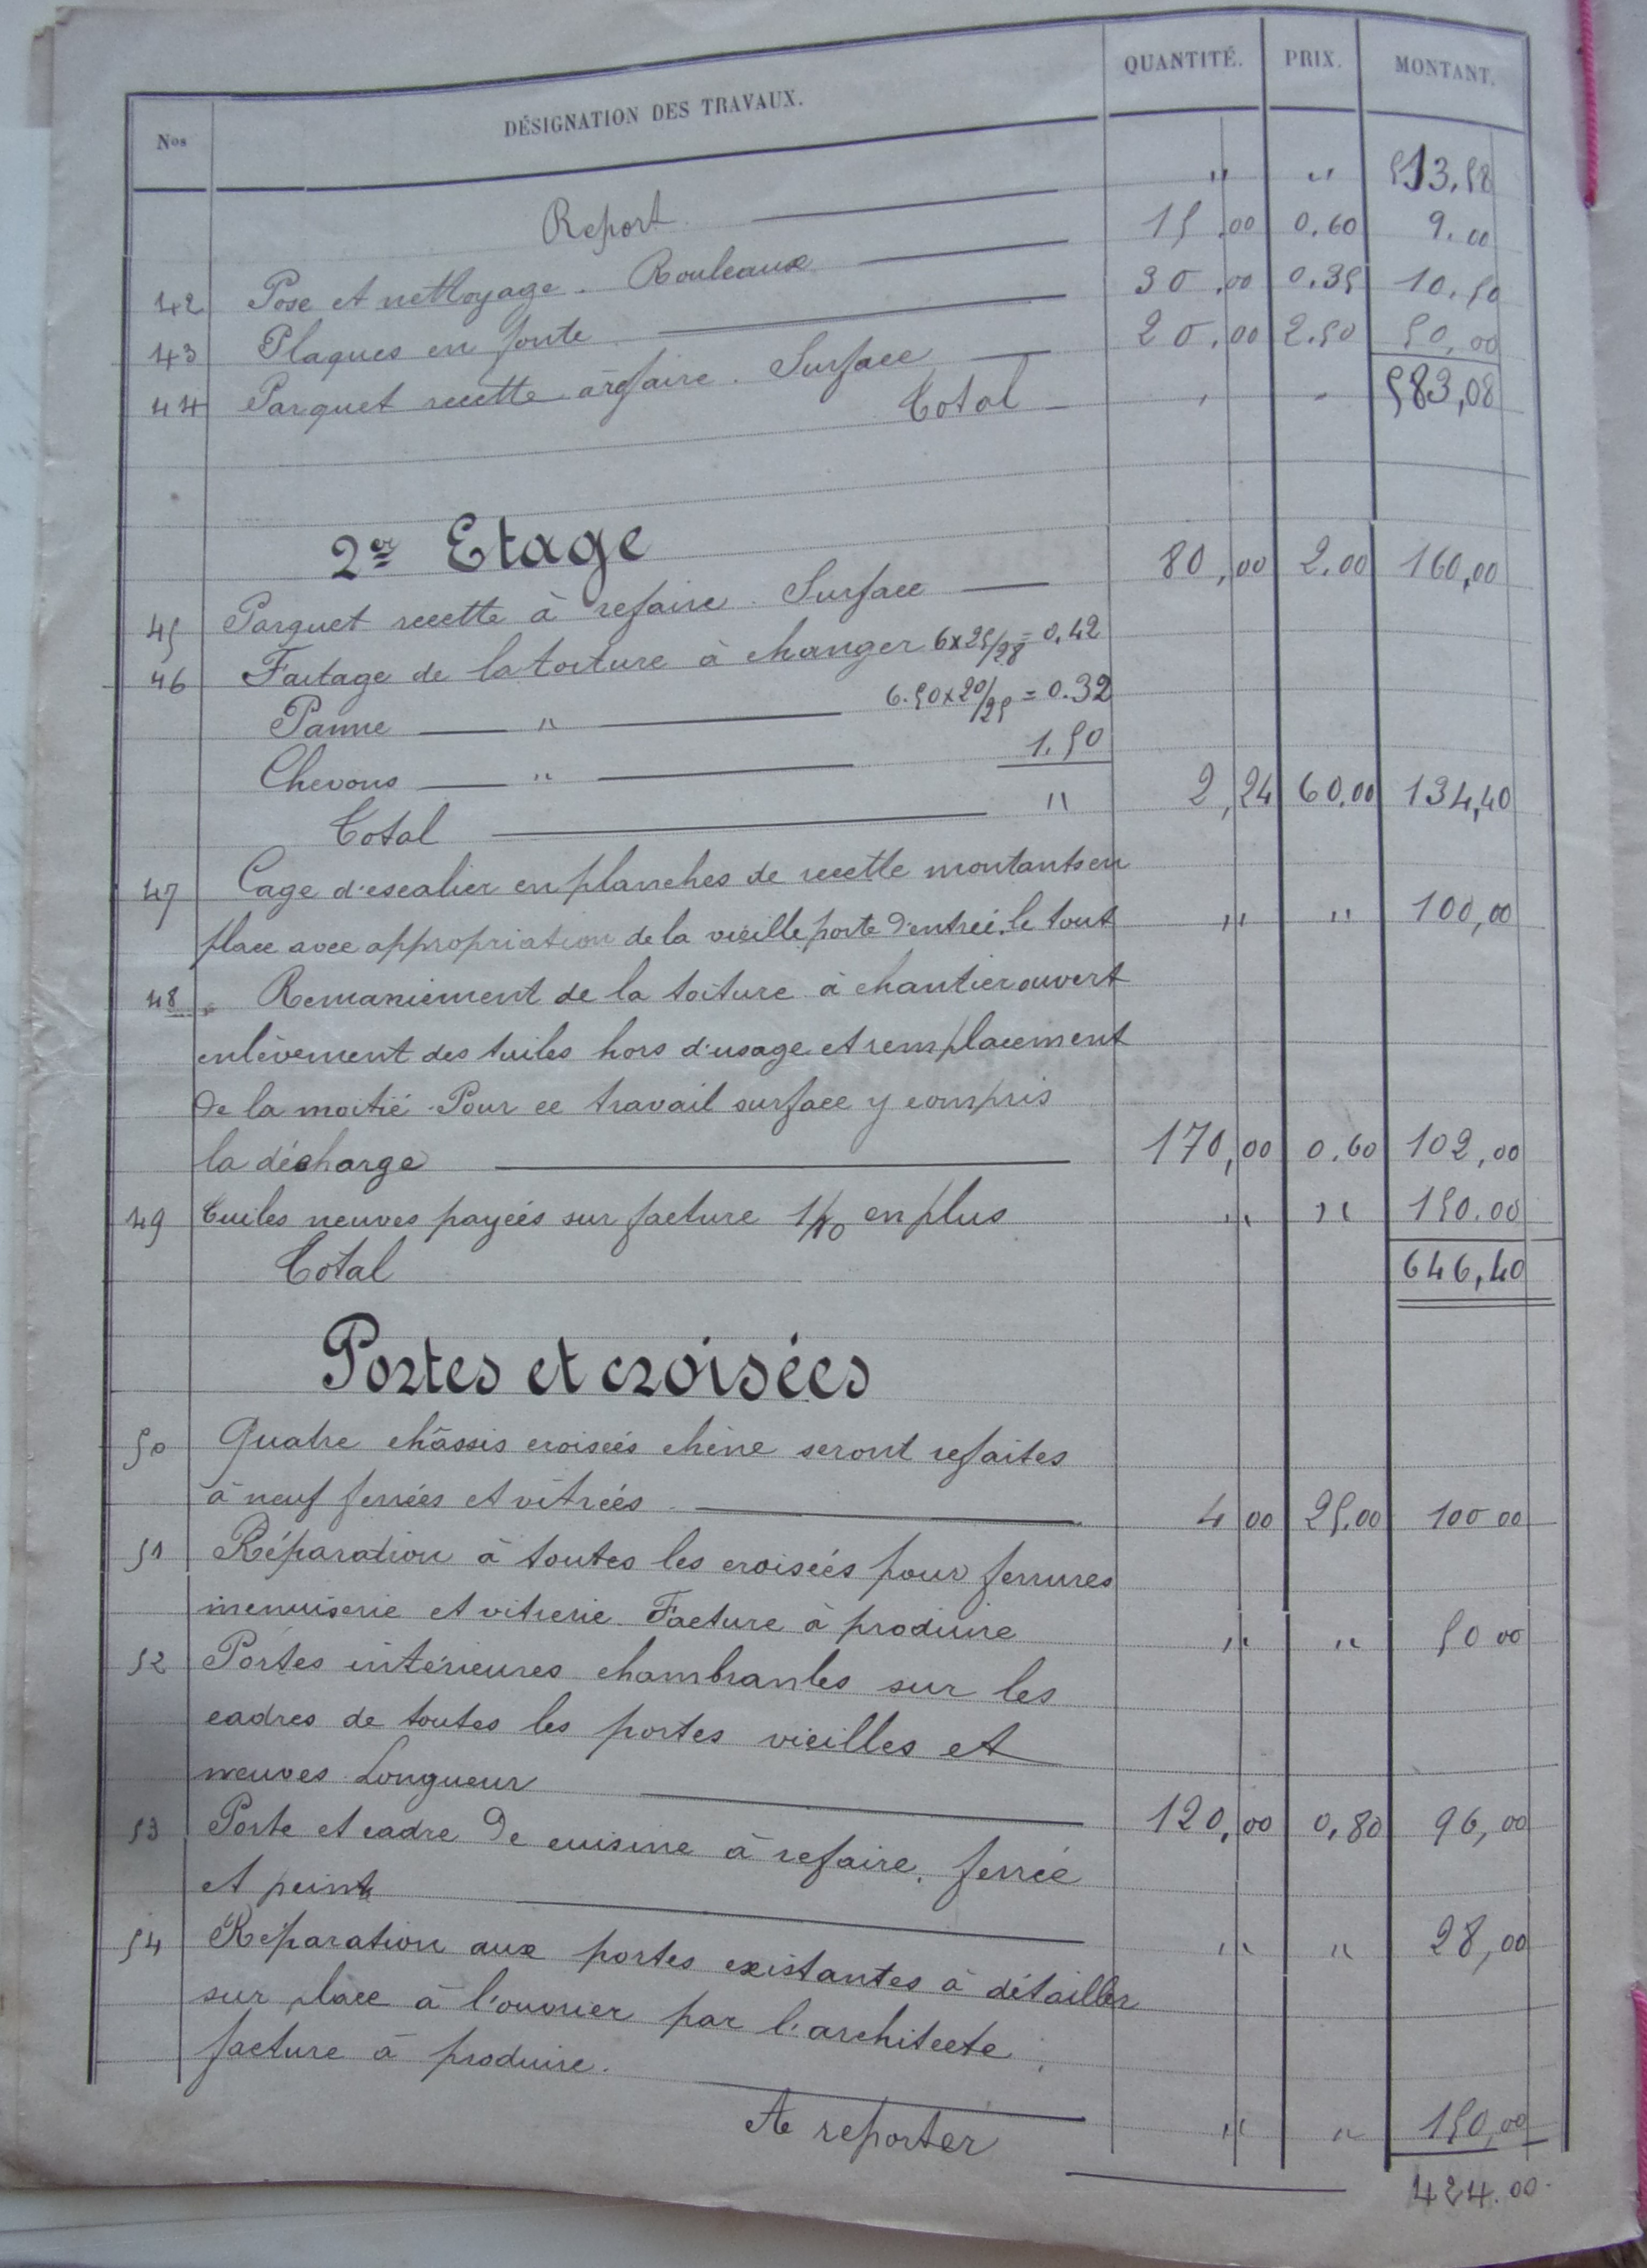 Nos DÉSIGNATION DES TRAVAUX. QUANTITÉ. PRIX. MONTANT.
Report " " 513,58
42 Pose et nettoyage. Rouleaux 15,00 0,60 9.00
43 Plaques en fonte 30,00 0,35 10,50
44 Parquet recette à refaire. Surface 20,00 2,50 50,00
Total " " 583,08
2er Etage
45 Parquet recette à refaire. Surface 80,00 2.00 160,00
46 Faitage de la toiture à changer 6x25/28 = 0,42
Panne " 6.50x20/25 = 0.32
Chevons " 1,50
Total " 2,24 60,00 134,40
47 Cage d'escalier en planches de recette montants en
place avec appropriation de la vieille porte d'entrée, le tout " " 100,00
48 Remaniement de la toiture à chantier ouvert
enlèvement des tuiles hors d'usage et remplacement
de la moitié. Pour ce travail surface y compris
la décharge 170,00 0,60 102,00
49 Tuiles neuves payées sur facture 1/10 en plus " " 150.00
Total 646,40
Portes et croisées
50 Quatre châssis croisées chêne seront refaites
à neuf ferrées et vitrées 4 00 25,00 100 00
51 Réparation à toutes les croisées pour ferrures
menuiserie et vitrerie. Facture à produire " " 50 00
52 Portes intérieures chambranles sur les
cadres de toutes les portes vieilles et
neuves. Longueur 120,00 0,80 96,00
53 Porte et cadre de cuisine à refaire, ferrée
et peint " " 28,00
54 Réparation aux portes existantes à détailler
sur place à l'ouvrier par l'architecte,
facture à produire. " " 150,00
A reporter 424.00